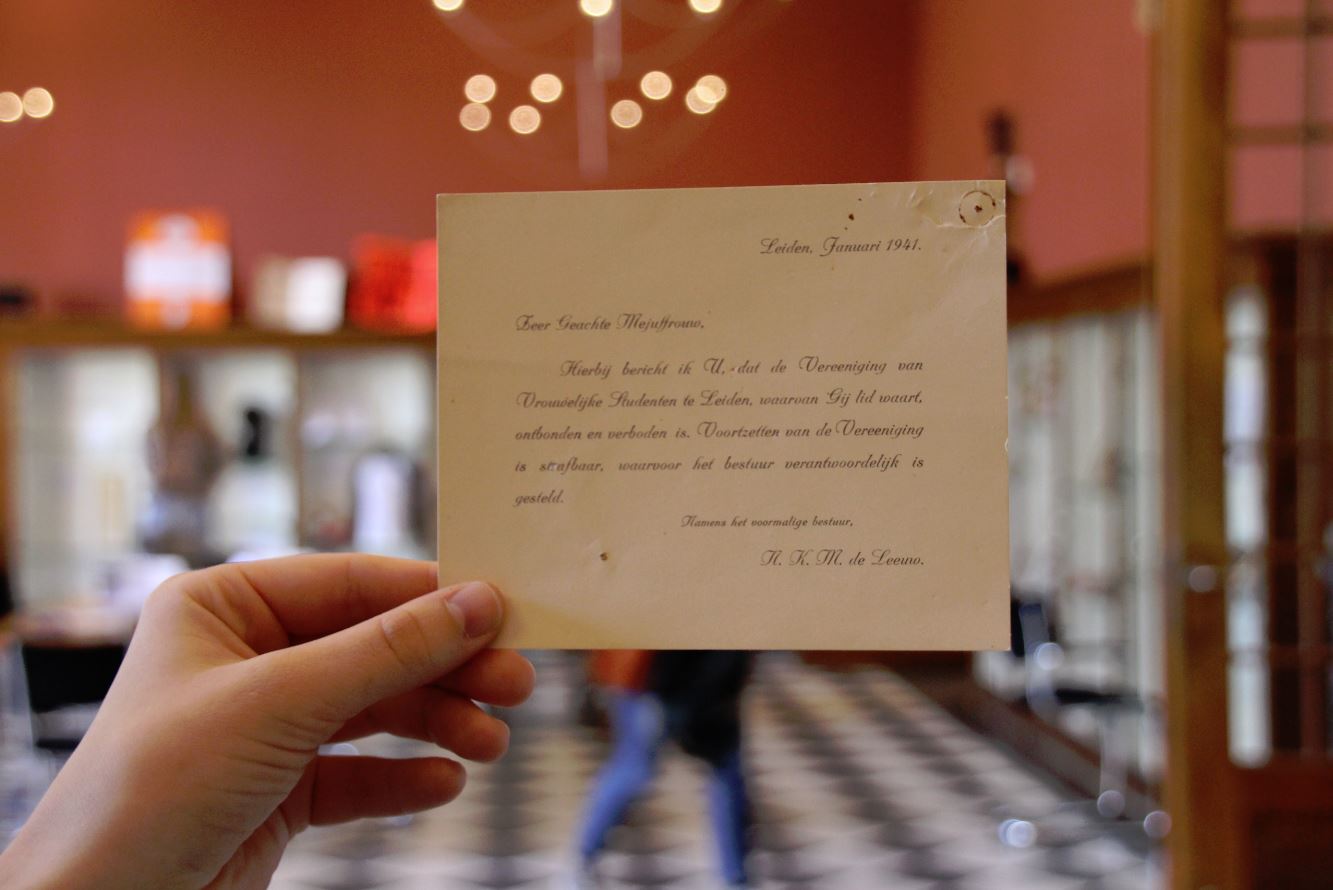 Leiden, Januari 1941.
Zeer Geachte Mejuffrouw,
Hierbij bericht ik U, dat de Vereeniging van
Vrouwelijke Studenten te Leiden, waarvan Gij lid waart,
ontbonden en verboden is. Voortzetten van de Vereeniging
is strafbaar, waarvoor het bestuur verantwoordelijk is
gesteld.
Namens het voormalige bestuur,
N. K. M. de Leeuw.